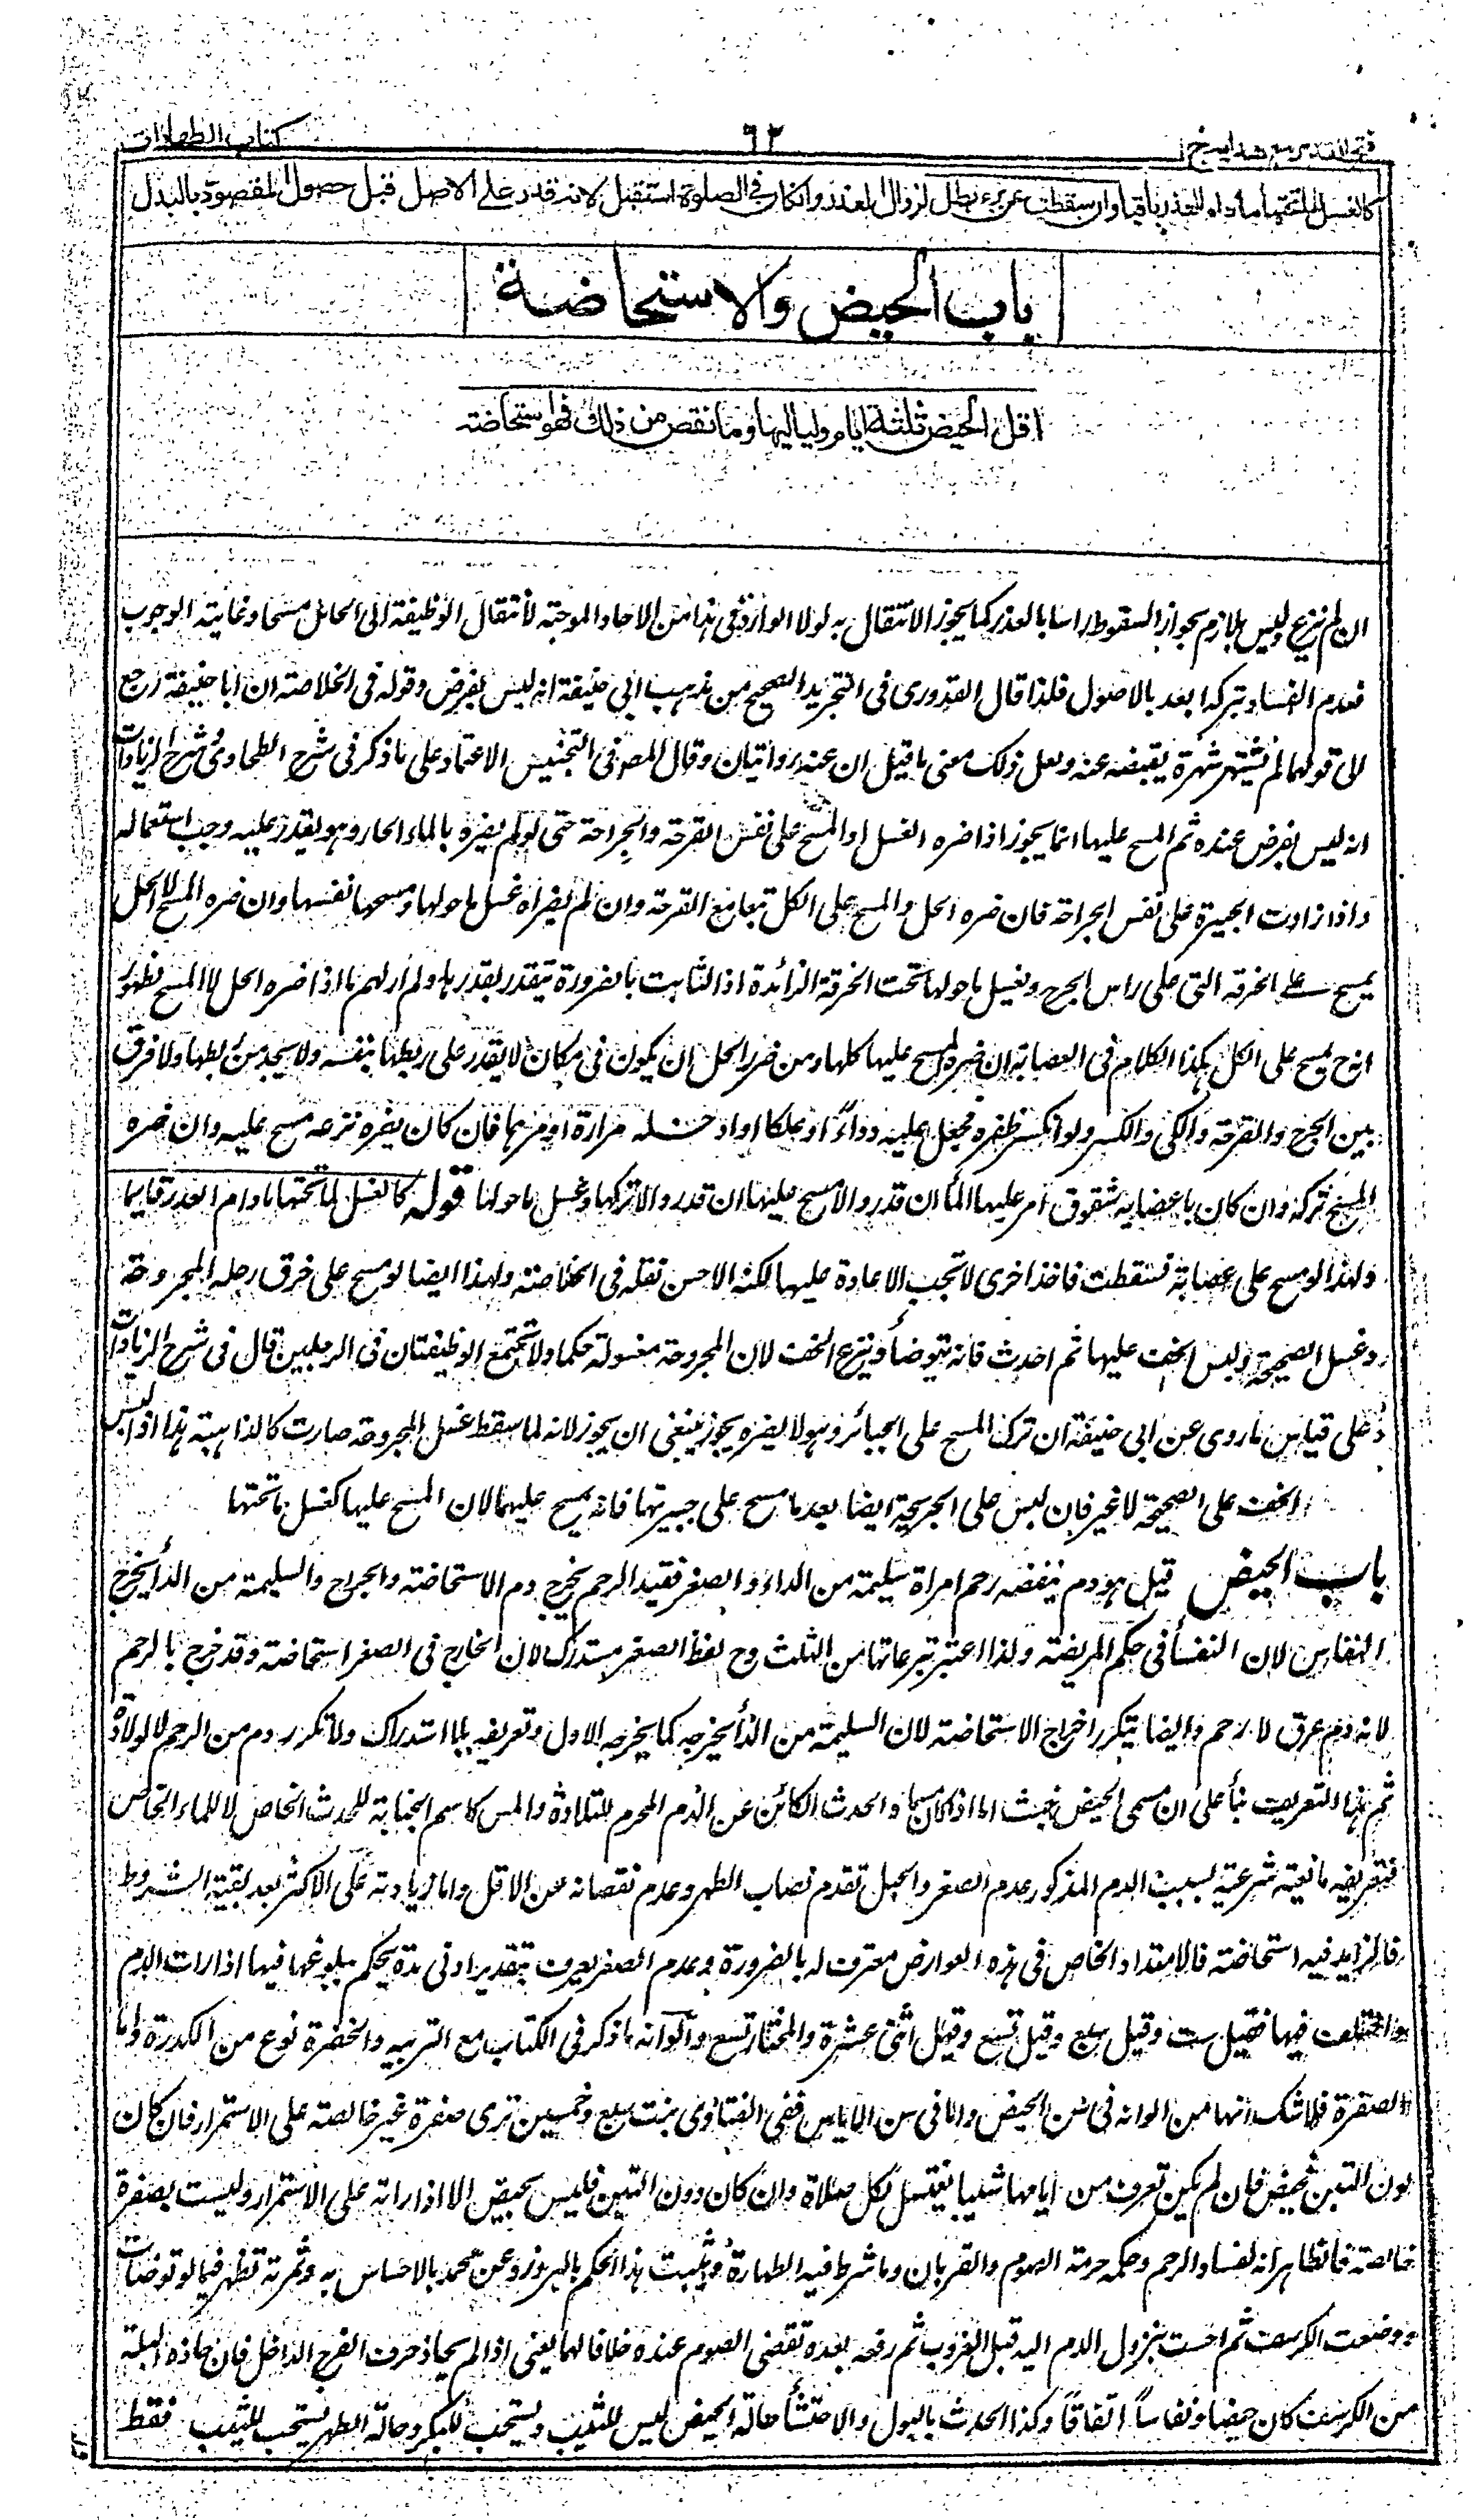 فتح القدير مع هدايه ج ١
٦٢
كتاب الطهارات
كالغسل لما تحتها ما دام العذر باقيا وان سقطت عن برء بطل لزوال العذر وانكان في الصلوة استقبل لانه قدر على الاصل قبل حصول المقصود بالبدل
باب الحيض والاستحاضة
اقل الحيض ثلثة ايام ولياليها وما نقص من ذلك فهو استحاضة
ان لم ينزع وليس بلازم بجواز السقوط راسا بالعذر كما يجوز الانتقال به لولا الوارد في هذا من الاحاد الموجبة لانتقال الوظيفة الى الحائل مسحا وغاية الوجوب
فعدم الفساد بتركه ابعد بالاصول فلذا قال القدوري في التجريد الصحيح من مذهب ابي حنيفة انه ليس بفرض وقوله في الخلاصة ان ابا حنيفة رجع
الى قولهما لم يشتهر شهرة نقيضه عنه ولعل ذلك معنى ما قيل ان عنه روايتان وقال المصنف في التجنيس الاعتماد على ما ذكر في شرح الطحاوي وشرح الزيادات
انه ليس بفرض عنده ثم المسح عليها انما يجوز اذا ضره الغسل او المسح على نفس القرحة والجراحة حتى لو لم يضره بالماء الحار وهو يقدر عليه وجب استعماله
واذا زادت الجبيرة على نفس الجراحة فان ضره الحل والمسح مسح على الكل تبعا مع القرحة وان لم يضراه غسل ما حولها ومسحها نفسها وان ضره المسح لا الحل
يمسح على الخرقة التي على راس الجرح ويغسل ما حولها تحت الخرقة الزائدة اذ الثابت بالضرورة يتقدر بقدرها ولم ار لهم ما اذا ضره الحل لا المسح لظهور
انه ح يمسح على الكل هكذا الكلام في العصابة ان ضره المسح عليها كلها ومن ضرر الحل ان يكون في مكان لا يقدر على ربطها بنفسه ولا يجد من يربطها ولا فرق
بين الجرح والقرحة والكي والكسر ولو انكسر ظفره فجعل عليه دواءً او علكا او ادخله مرارة او مرهما فان كان يضره نزعه مسح عليه وان ضره
المسح تركه وان كان باعضايه شقوق امر عليها الماء ان قدر والا مسح عليها ان قدر والا تركها وغسل ما حولها قوله كالغسل لما تحتها ما دام العذر قايما
ولهذا لو مسح على عصابة فسقطت فاخذ اخرى لا تجب الاعادة عليها لكنه الاحسن نقله في الخلاصة ولهذا ايضا لو مسح على خرق رجله المجروحة
وغسل الصحيحة ولبس الخف عليها ثم احدث فانه يتوضأ وينزع الخف لان المجروحة مغسولة حكما ولا تجتمع الوظيفتان في الرجلين قال في شرح الزيادات
وعلى قياس ما روى عن ابي حنيفة ان ترك المسح على الجبائر وهو لا يضره يجوز ينبغي ان يجوز لانه لما سقط غسل المجروحة صارت كالذاهبة هذا اذا لبس
الخف على الصحيحة لا غير فان لبس على الجريحة ايضا بعد ما مسح على جبيرتها فانه يمسح عليهما لان المسح عليها كغسل ما تحتها
باب الحيض قيل هو دم ينفضه رحم امراة سليمة من الداء والصغر فقيد الرحم يخرج دم الاستحاضة والجراح والسليمة من الداء يخرج
النفاس لان النفسأ في حكم المريضة ولذا اعتبر تبرعاتها من الثلث وح لفظ الصغر مستدرك لان الخارج في الصغر استحاضة وقد خرج بالرحم
لانه دم عرق لا رحم وايضا يتكرر اخراج الاستحاضة لان السليمة من الدأ يخرجه كما يخرجه الاول وتعريفه بلا استدراك ولا تكرر دم من الرحم لا لولادة
ثم هذا التعريف بنأ على ان مسمى الحيض خبث اما اذا كان مسماه الحدث الكائن عن الدم المحرم للتلاوة والمس كاسم الجنابة للحدث الخاص لا للماء الخاص
فتعريفه مانعية شرعية بسبب الدم المذكور عدم الصغر والحبل تقدم نصاب الطهر وعدم نقصانه عن الاقل واما زيادته على الاكثر بعد بقية الشروط
فالزايد فيه استحاضة فالامتداد الخاص في هذه العوارض معترف له بالضرورة وعدم الصغر يعرف بتقدير ادنى مدة يحكم ببلوغها فيها اذا رات الدم
واختلف فيها فقيل ست وقيل سبع وقيل تسع وقيل اثنى عشرة والمختار تسع والوانه ما ذكر في الكتاب مع التربيه والخضرة نوع من الكدرة واما
الصفرة فلا شك انها من الوانه في سن الحيض واما في سن الاياس ففي الفتاوى بنت سبع وخمسين ترى صفرة غير خالصة على الاستمرار فان كان
لون التبن فحيض فان لم يكن تعرف من ايامها شيئا بغتسل لكل صلاة وان كان دون التبن فليس بحيض الا اذا راته على الاستمرار وليست بصفرة
خالصة فالظاهر انه لفساد الرحم وحكمه حرمة الصوم والقربان وما شرط فيه الطهارة ويثبت هذا الحكم بالبروز وعن محمد بالاحساس به وثمرته تظهر فيما لو توضأت
ووضعت الكرسف ثم احست بنزول الدم اليه قبل الغروب ثم رفعته بعده تقضي الصوم عنده خلافا لهما يعني اذا لم يحاذ حرف الفرج الداخل فان حاذه البلة
من الكرسف كان حيضا ونفاساً اتفاقاً وكذا الحدث بالبول والاحتشأ حالة الحيض ليس للثيب ويستحب للبكر وحالة الطهر يستحب للثيب فقط